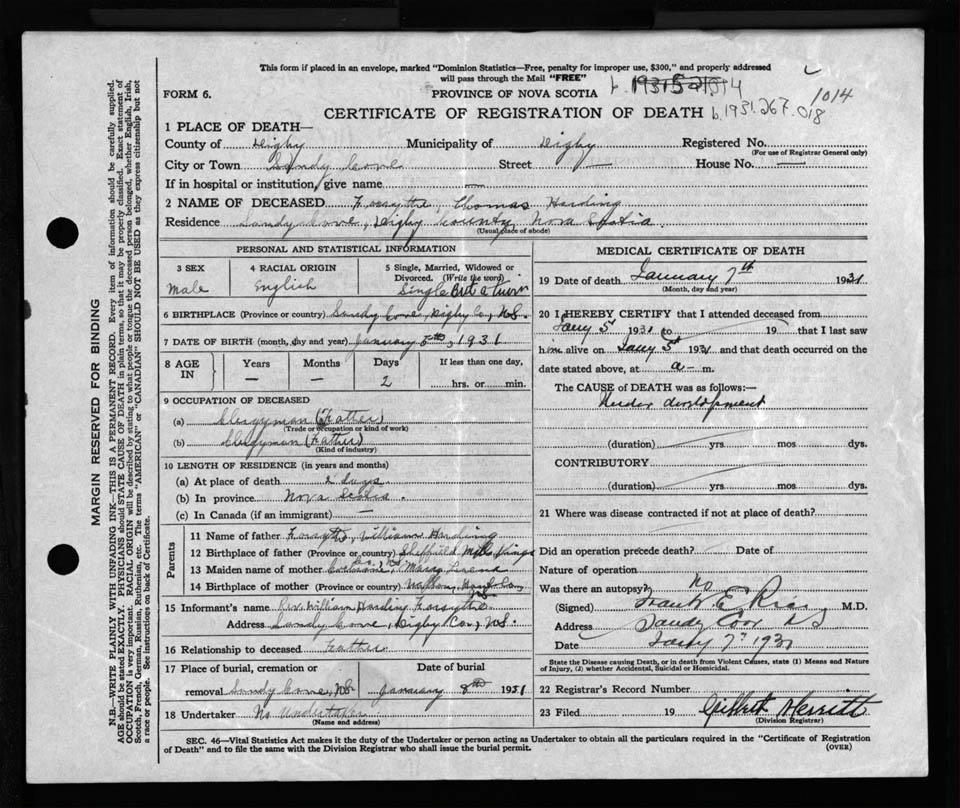 This form if placed in an envelope, marked "Dominion Statistics—Free, penalty for improper use, $300," and properly addressed
will pass through the Mail "FREE"
FORM 6.
PROVINCE OF NOVA SCOTIA
1014
CERTIFICATE OF REGISTRATION OF DEATH b.1931.267.018
1 PLACE OF DEATH—
County of Digby Municipality of Digby Registered No.
(For use of Registrar General only)
City or Town Sandy Cove Street — House No. —
If in hospital or institution, give name —
2 NAME OF DECEASED Forsythe, Thomas Harding
Residence Sandy Cove, Digby County, Nova Scotia.
(Usual place of abode)
PERSONAL AND STATISTICAL INFORMATION
3 SEX
Male
4 RACIAL ORIGIN
English
5 Single, Married, Widowed or
Divorced. (Write the word)
Single But a twin
6 BIRTHPLACE (Province or country) Sandy Cove, Digby Co., N.S.
7 DATE OF BIRTH (month, day and year) January 5th, 1931
8 AGE IN
Years
—
Months
—
Days
2
If less than one day,
hrs. or min.
9 OCCUPATION OF DECEASED
(a) Clergyman (Father)
(Trade or occupation or kind of work)
(b) Clergyman (Father)
(Kind of industry)
10 LENGTH OF RESIDENCE (in years and months)
(a) At place of death 2 days
(b) In province Nova Scotia.
(c) In Canada (if an immigrant) —
Parents
11 Name of father Forsythe, William Harding
12 Birthplace of father (Province or country) Sheffield Mills Kings Co., N.S.
13 Maiden name of mother Mary
14 Birthplace of mother (Province or country)
15 Informant's name Rev. William Harding Forsythe
Address Sandy Cove, Digby Co., N.S.
16 Relationship to deceased Father
17 Place of burial, cremation or Date of burial
removal Sandy Cove, N.S. January 8th 1931
18 Undertaker No Undertaker
(Name and address)
MEDICAL CERTIFICATE OF DEATH
19 Date of death January 7th 1931
(Month, day and year)
20 I HEREBY CERTIFY that I attended deceased from
Jany 5th 1931 to 19 that I last saw
him alive on Jany 5th 1931 and that death occurred on the
date stated above, at a — m.
The CAUSE of DEATH was as follows:—
Under development
(duration) yrs. mos. dys.
CONTRIBUTORY
(duration) yrs. mos. dys.
21 Where was disease contracted if not at place of death?
Did an operation precede death? Date of
Nature of operation
Was there an autopsy? No
(Signed) Frank E Rice M.D.
Address Sandy Cove NS
Date Jany 7th 1931
State the Disease causing Death, or in death from Violent Causes, state (1) Means and Nature
of Injury, (2) whether Accidental, Suicidal or Homicidal.
22 Registrar's Record Number
23 Filed 19 Gilbert Merritt
(Division Registrar)
SEC. 46—Vital Statistics Act makes it the duty of the Undertaker or person acting as Undertaker to obtain all the particulars required in the "Certificate of Registration
of Death" and to file the same with the Division Registrar who shall issue the burial permit.
(OVER)
MARGIN RESERVED FOR BINDING
N.B.—WRITE PLAINLY WITH UNFADING INK—THIS IS A PERMANENT RECORD. Every item of information should be carefully supplied.
AGE should be stated EXACTLY. PHYSICIANS should STATE CAUSE OF DEATH in plain terms, so that it may be properly classified. Exact statement of
OCCUPATION is very important. RACIAL ORIGIN will be described by stating to what people or tongue the deceased person belonged, whether English, Irish,
Scotch, French, German, Russian, Ruthenian, etc. The terms "AMERICAN" or "CANADIAN" SHOULD NOT BE USED as they express citizenship but not
a race or people. See instructions on back of Certificate.